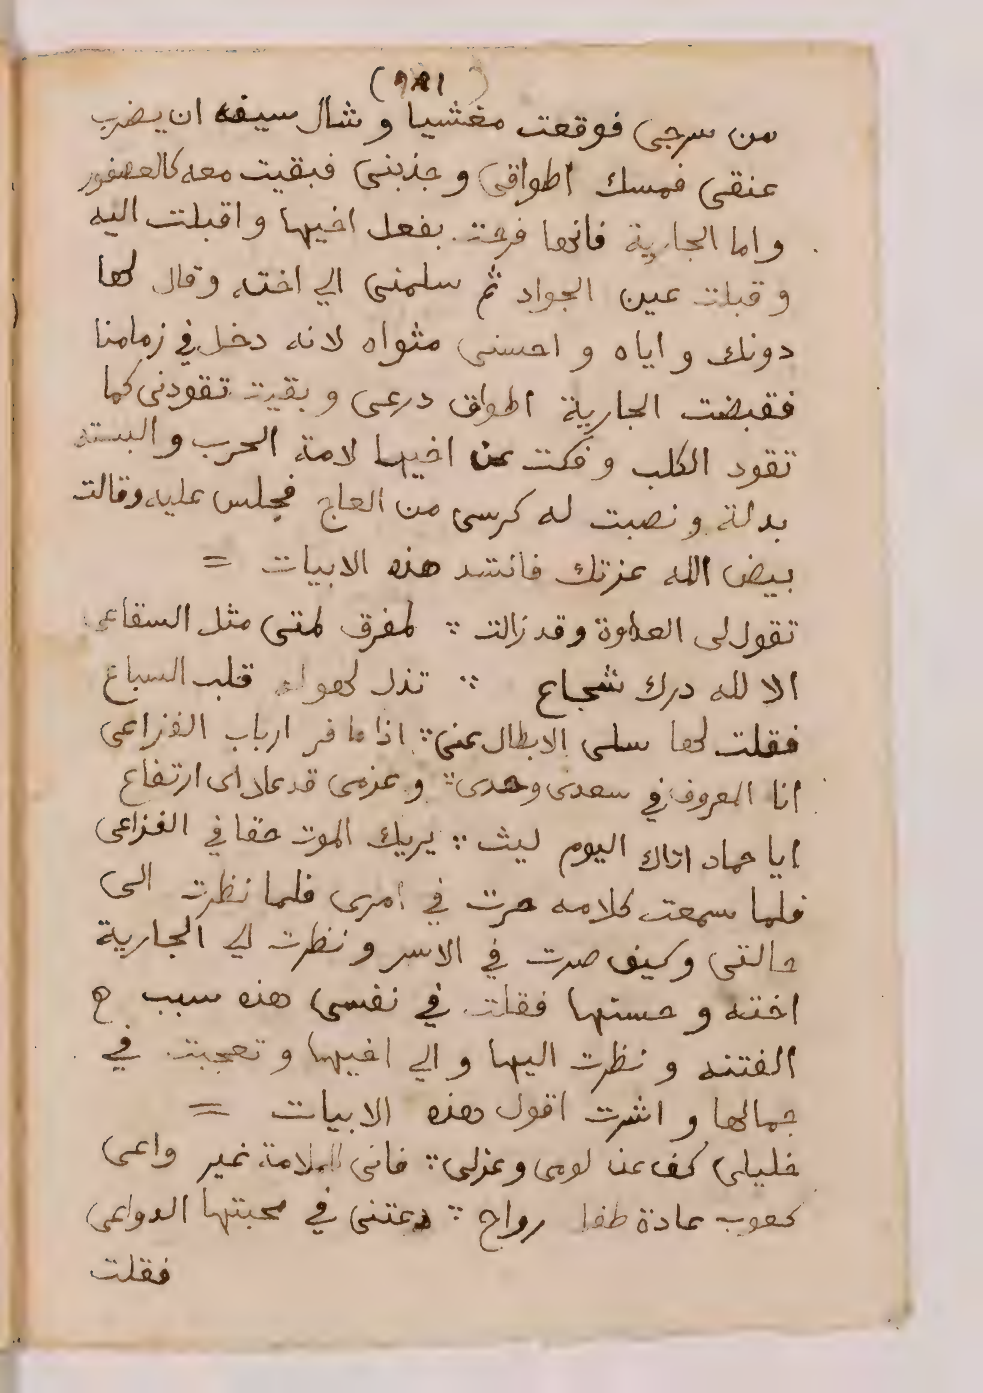 من سرجى فوقعت مغشيا و شال سيفه ان يضرب
عنقى فمسك اطواقى و جذبنى فبقيت معه كالعصفور
و اما الجارية فانها فرحت بفعل اخيها و اقبلت اليه
و قبلت عين الجواد ثم سلمنى الي اخته و قال لها
دونك و اياه و احسنى مثواه لانه دخل في زمامنا
فقبضت الجارية اطواق درعى و بقيت تقودنى كما
تقود الكلب و فكت عن اخيها لامة الحرب و البسته
بدلة و نصبت له كرسى من العاج فجلس عليه وقالت
بيض الله عزتك فانشد هذه الابيات =
تقول لى العداوة وقد زالت ∵ لمفرق لمتى مثل السقاعى
الا لله درك شجاع ∵ تذل قلب السباع
فقلت لها سلى الابطال عنى ∵ اذا ما فر ارباب الفزاعى
انا المعروف في سعدى وحدى ∵ و عزمى قد علا اى ارتفاع
ايا حماد اتاك اليوم ليث ∵ يريك الموت حقا في الفزاعى
فلما سمعت كلامه حرت في امرى فلما نظرت الى
حالتى وكيف صرت في الاسر و نظرت الي الجارية
اخته و حسنها فقلت في نفسى هذه سبب
الفتنه و نظرت اليها و الي اخيها و تعجبت في
جمالها و اشرت اقول هذه الابيات =
خليلى كف عن لومى و عزلى ∵ فانى للملامة غير واعى
كعوب عادة رواح ∵ دعتنى في محبتها الدواعى
فقلت